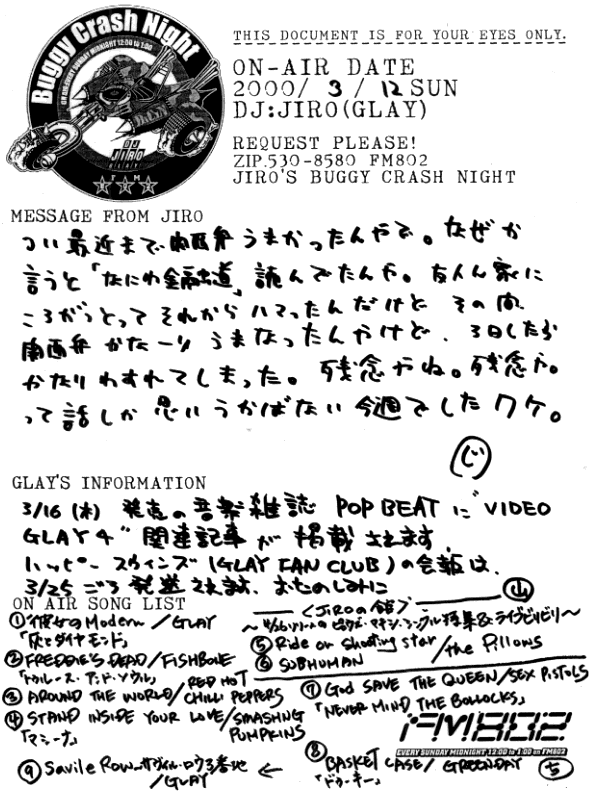 Buggy Crash Night
ON AIR: EVERY SUNDAY MIDNIGHT 12:00 to 1:00
DJ
JIRO
GLAY
FM
802
THIS DOCUMENT IS FOR YOUR EYES ONLY.
ON-AIR DATE
2000/ 3 / 12 SUN
DJ:JIRO(GLAY)
REQUEST PLEASE!
ZIP.530-8580 FM802
JIRO'S BUGGY CRASH NIGHT
MESSAGE FROM JIRO
つい最近まで関西弁うまかったんやで。なぜか
言うと「なにわ金融道」読んでたんや。友人ん家に
ころがっとってそれからハマったんだけど その間
関西弁かなーりうまなったんやけど、3日したら
かなりわすれてしまった。残念やね。残念や。
って話しか思いうかばない今週でしたワケ。
(じ)
GLAY'S INFORMATION
3/16(木) 発売の音楽雑誌 POP BEATに"VIDEO
GLAY 4" 関連記事が掲載されます
ハッピースウィングズ(GLAY FAN CLUB)の会報は、
3/25ごろ発送されます。おたのしみに
山
ON AIR SONG LIST
①彼女のModern/GLAY
「灰とダイヤモンド」
②FREDDIE'S DEAD/FISHBONE
「トゥルース・アンド・ソウル」
③AROUND THE WORLD/RED HOT CHILLI PEPPERS
④STAND INSIDE YOUR LOVE/SMASHING PUMPKINS
「マシーナ」
〈JIROの館〉
⑤Ride on shooting star
⑥SUBHUMAN
/the pillows
⑦God SAVE THE QUEEN/SEX PISTOLS
「NEVER MIND THE BOLLOCKS」
FM802
EVERY SUNDAY MIDNIGHT 12:00 to 1:00 on FM802
⑧BASKET CASE/GREENDAY
「ドゥーキー」
⑨Savile Row〜サヴィル・ロウ3番地
/GLAY